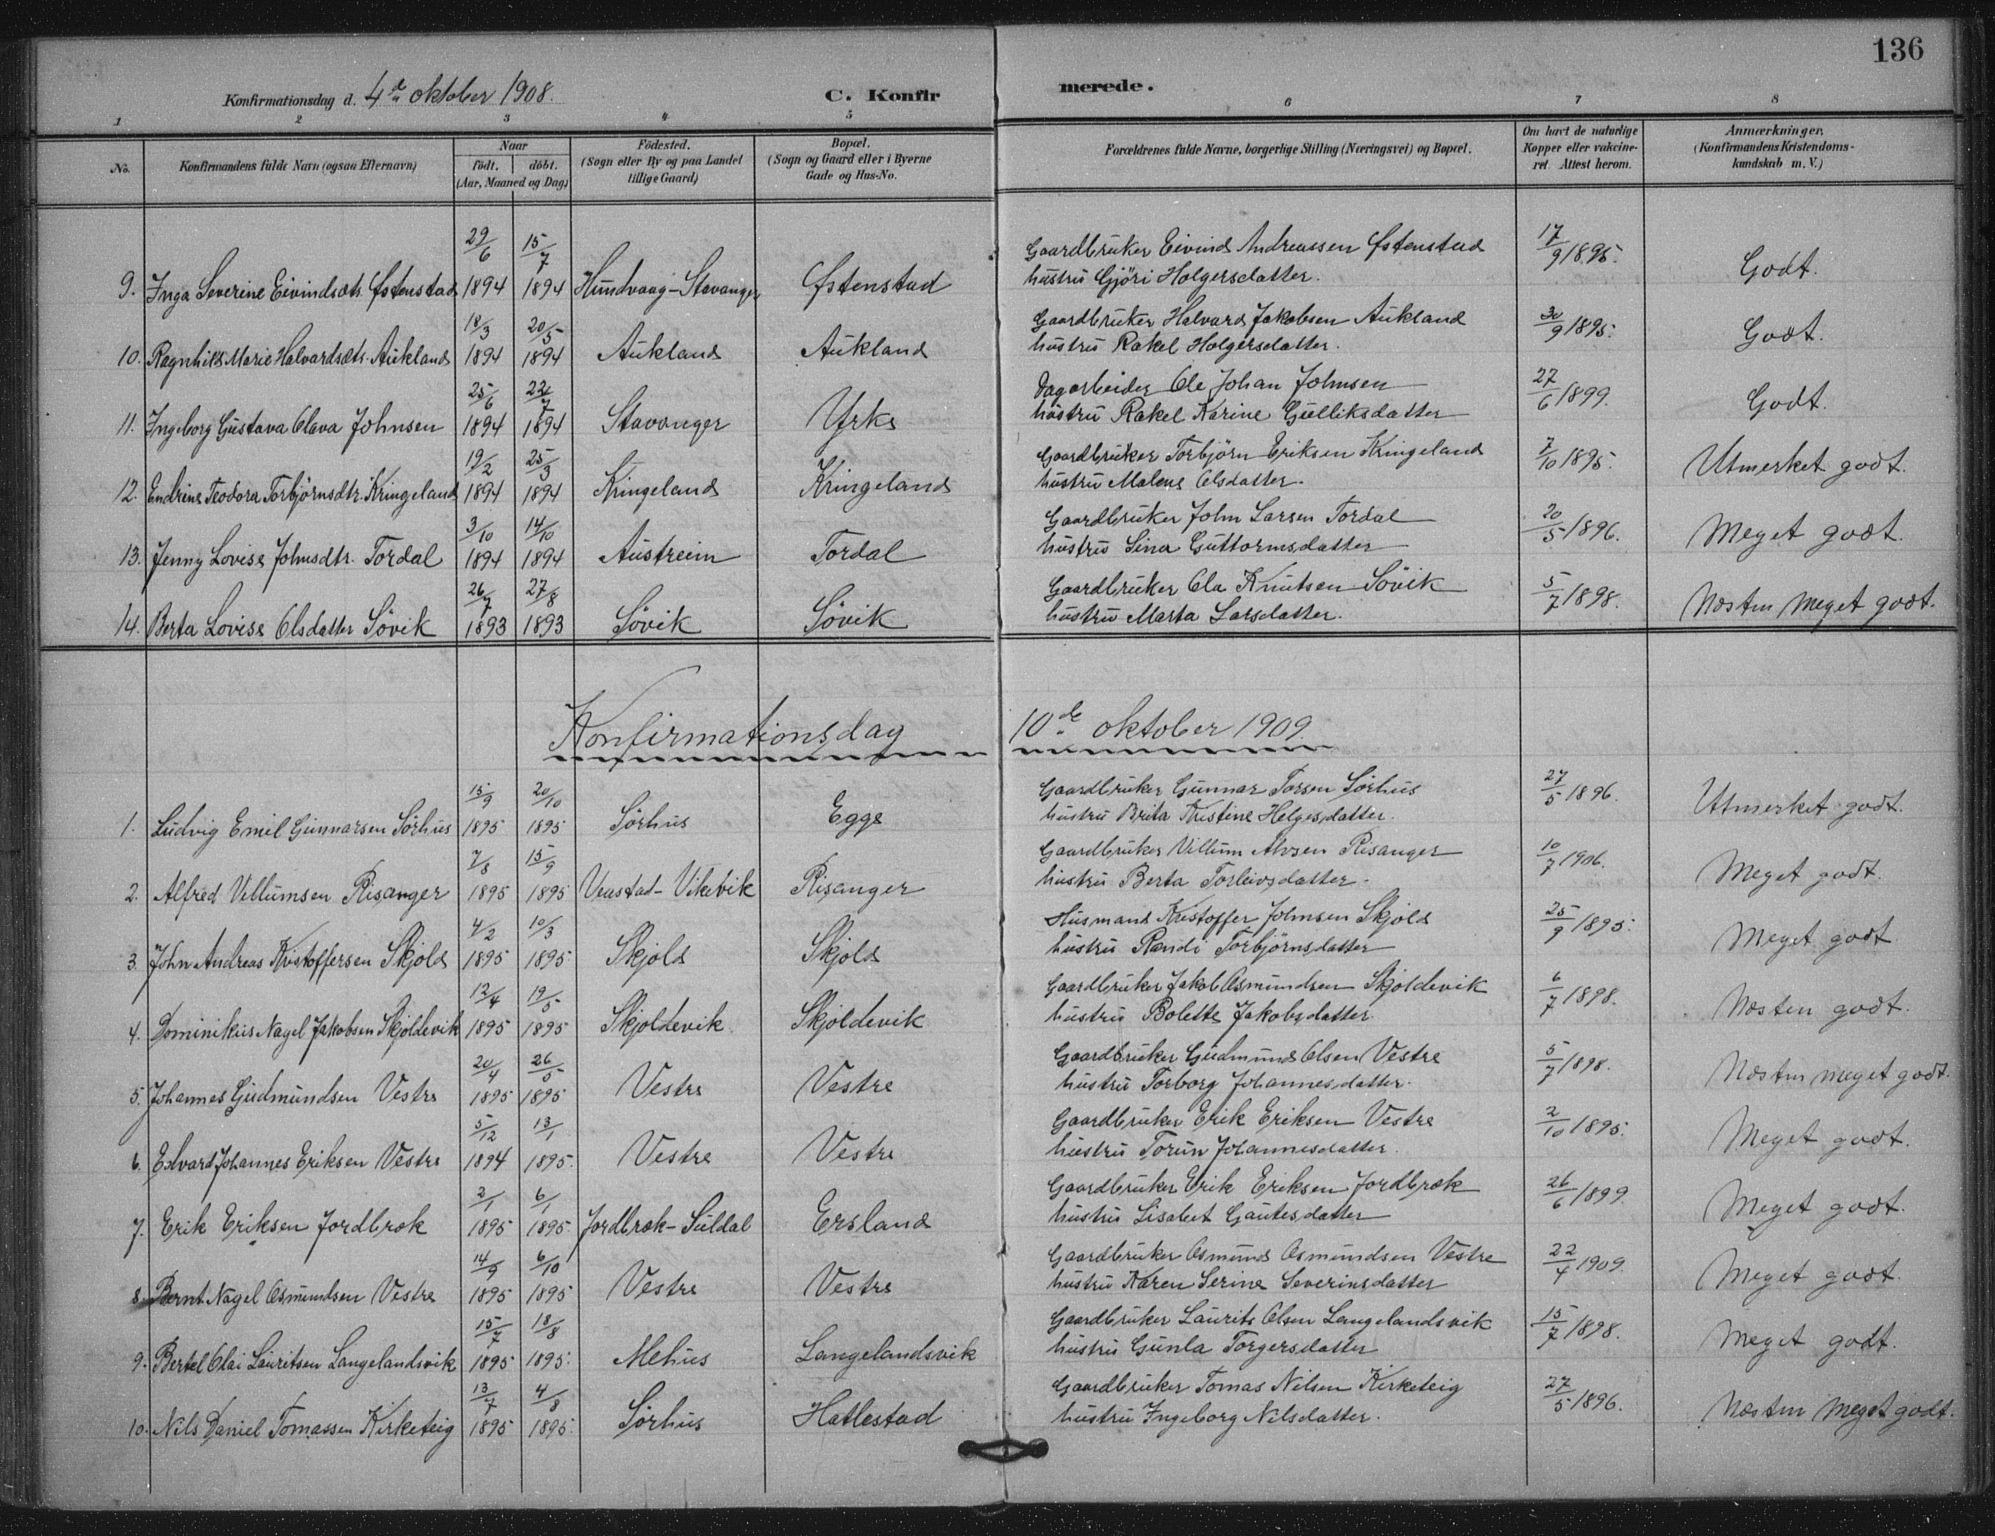 136
Konfirmationsdag d. 4de oktober 1908. C. Konfirmerede.
1 2 3 4 5 6 7 8
No. Konfirmandens fulde Navn (ogsaa Efternavn) Naar født. døbt. (Aar, Maaned og Dag) Fødested. (Sogn eller By og paa Landet tillige Gaard) Bopæl. (Sogn og Gaard eller i Byerne Gade og Hus-No. Forældrenes fulde Navne, borgerlige Stilling (Næringsvei) og Bopæl. Om havt de naturlige Kopper eller vakcineret. Attest herom. Anmærkninger. (Konfirmandens Kristendomskundskab m. V.)
29/6 15/7 Gaardbruker Eivind Andreassen Østenstad 17/9 1895.
9. Inga Severine Eivindsdtr. Østenstad 1894 1894 Hundvaag-Stavanger Østenstad hustru Gjøri Holgersdatter. Godt.
18/3 20/5 Gaardbruker Halvard Jakobsen Aukland 30/9 1895.
10. Ragnhild Marie Halvardsdtr. Aukland 1894 1894 Aukland Aukland hustru Rakel Holgersdatter. Godt.
25/6 22/7 Dagarbeider Ole Johan Johnsen 27/6 1899.
11. Ingeborg Gustava Olava Johnsen 1894 1894 Stavanger Yrke hustru Rakel Karine Gulliksdatter Godt.
19/2 25/3 Gaardbruker Torbjørn Eriksen Kringeland 7/10 1895.
12. Endrine Teodora Torbjørnsdtr. Kringeland 1894 1894 Kringeland Kringeland hustru Malene Olsdatter. Utmerket godt.
3/10 14/10 Gaardbruker John Larsen Tordal 20/5 1896.
13. Jenny Lovise Johnsdtr. Tordal 1894 1894 Austreim Tordal hustru Sina Guttormsdatter Meget godt.
26/7 27/8 Gaardbruker Ola Knutsen Søvik 5/7 1898.
14. Berta Lovise Olsdatter Søvik 1893 1893 Søvik Søvik hustru Marta Larsdatter. Næsten meget godt.
Konfirmationsdag 10de oktober 1909.
15/9 20/10 Gaardbruker Gunnar Torsen Sørhus 27/5 1896.
1. Ludvig Emil Gunnarsen Sørhus 1895 1895 Sørhus Egge hustru Brita Kristine Helgesdatter. Utmerket godt.
7/8 15/9 Gaardbruker Villum Risanger 10/7 1906.
2. Alfred Villumsen Risanger 1895 1895 Vikevik Risanger hustru Berta Torleivsdatter. Meget godt.
4/2 10/3 Husmand Kristoffer Johnsen Skjold 25/9 1895.
3. John Andreas Kristoffersen Skjold 1895 1895 Skjold Skjold hustru Randi Torbjørnsdatter Meget godt
12/4 19/5 Gaardbruker Jakob Osmundsen Skjoldevik 6/7 1898.
4. Dominikus Nagel Jakobsen Skjoldevik 1895 1895 Skjoldevik Skjoldevik hustru Bolette Jakobsdatter. Næsten godt.
20/4 26/5 Gaardbruker Gudmund Olsen Vestre 5/7 1898.
5. Johannes Gudmundsen Vestre 1895 1895 Vestre Vestre hustru Torborg Johannesdatter. Næsten meget godt.
5/12 13/1 Gaardbruker Erik Eriksen Vestre 2/10 1895.
6. Edvard Johannes Eriksen Vestre 1894 1895. Vestre Vestre hustru Torun Johannesdatter. Meget godt.
2/1 6/1 Gaardbruker Erik Eriksen Jordbræk 26/6 1899.
7. Erik Eriksen Jordbræk 1895 1895 Jordbræk-Suldal Ersland hustru Lisabet Gautesdatter Meget godt.
14/9 6/10 Gaardbruker Osmund Osmundsen Vestre 22/4 1909.
8. Bernt Nagel Osmundsen Vestre 1895 1895 Vestre Vestre hustru Karen Serine Severinsdatter Meget godt.
15/7 18/8 Gaardbruker Laurits Olsen Langelandsvik 15/7 1898.
9. Bertel Olai Lauritsen Langelandsvik 1895 1895. Mehus Langelandsvik hustru Gunla Torgersdatter Meget godt.
13/7 4/8 Gaardbruker Tomas Nilsen Kirketeig 27/5 1896.
10. Nils Daniel Tomassen Kirketeig 1895 1895. Sørhus Hatlestad hustru Ingeborg Nilsdatter. Næsten meget godt.